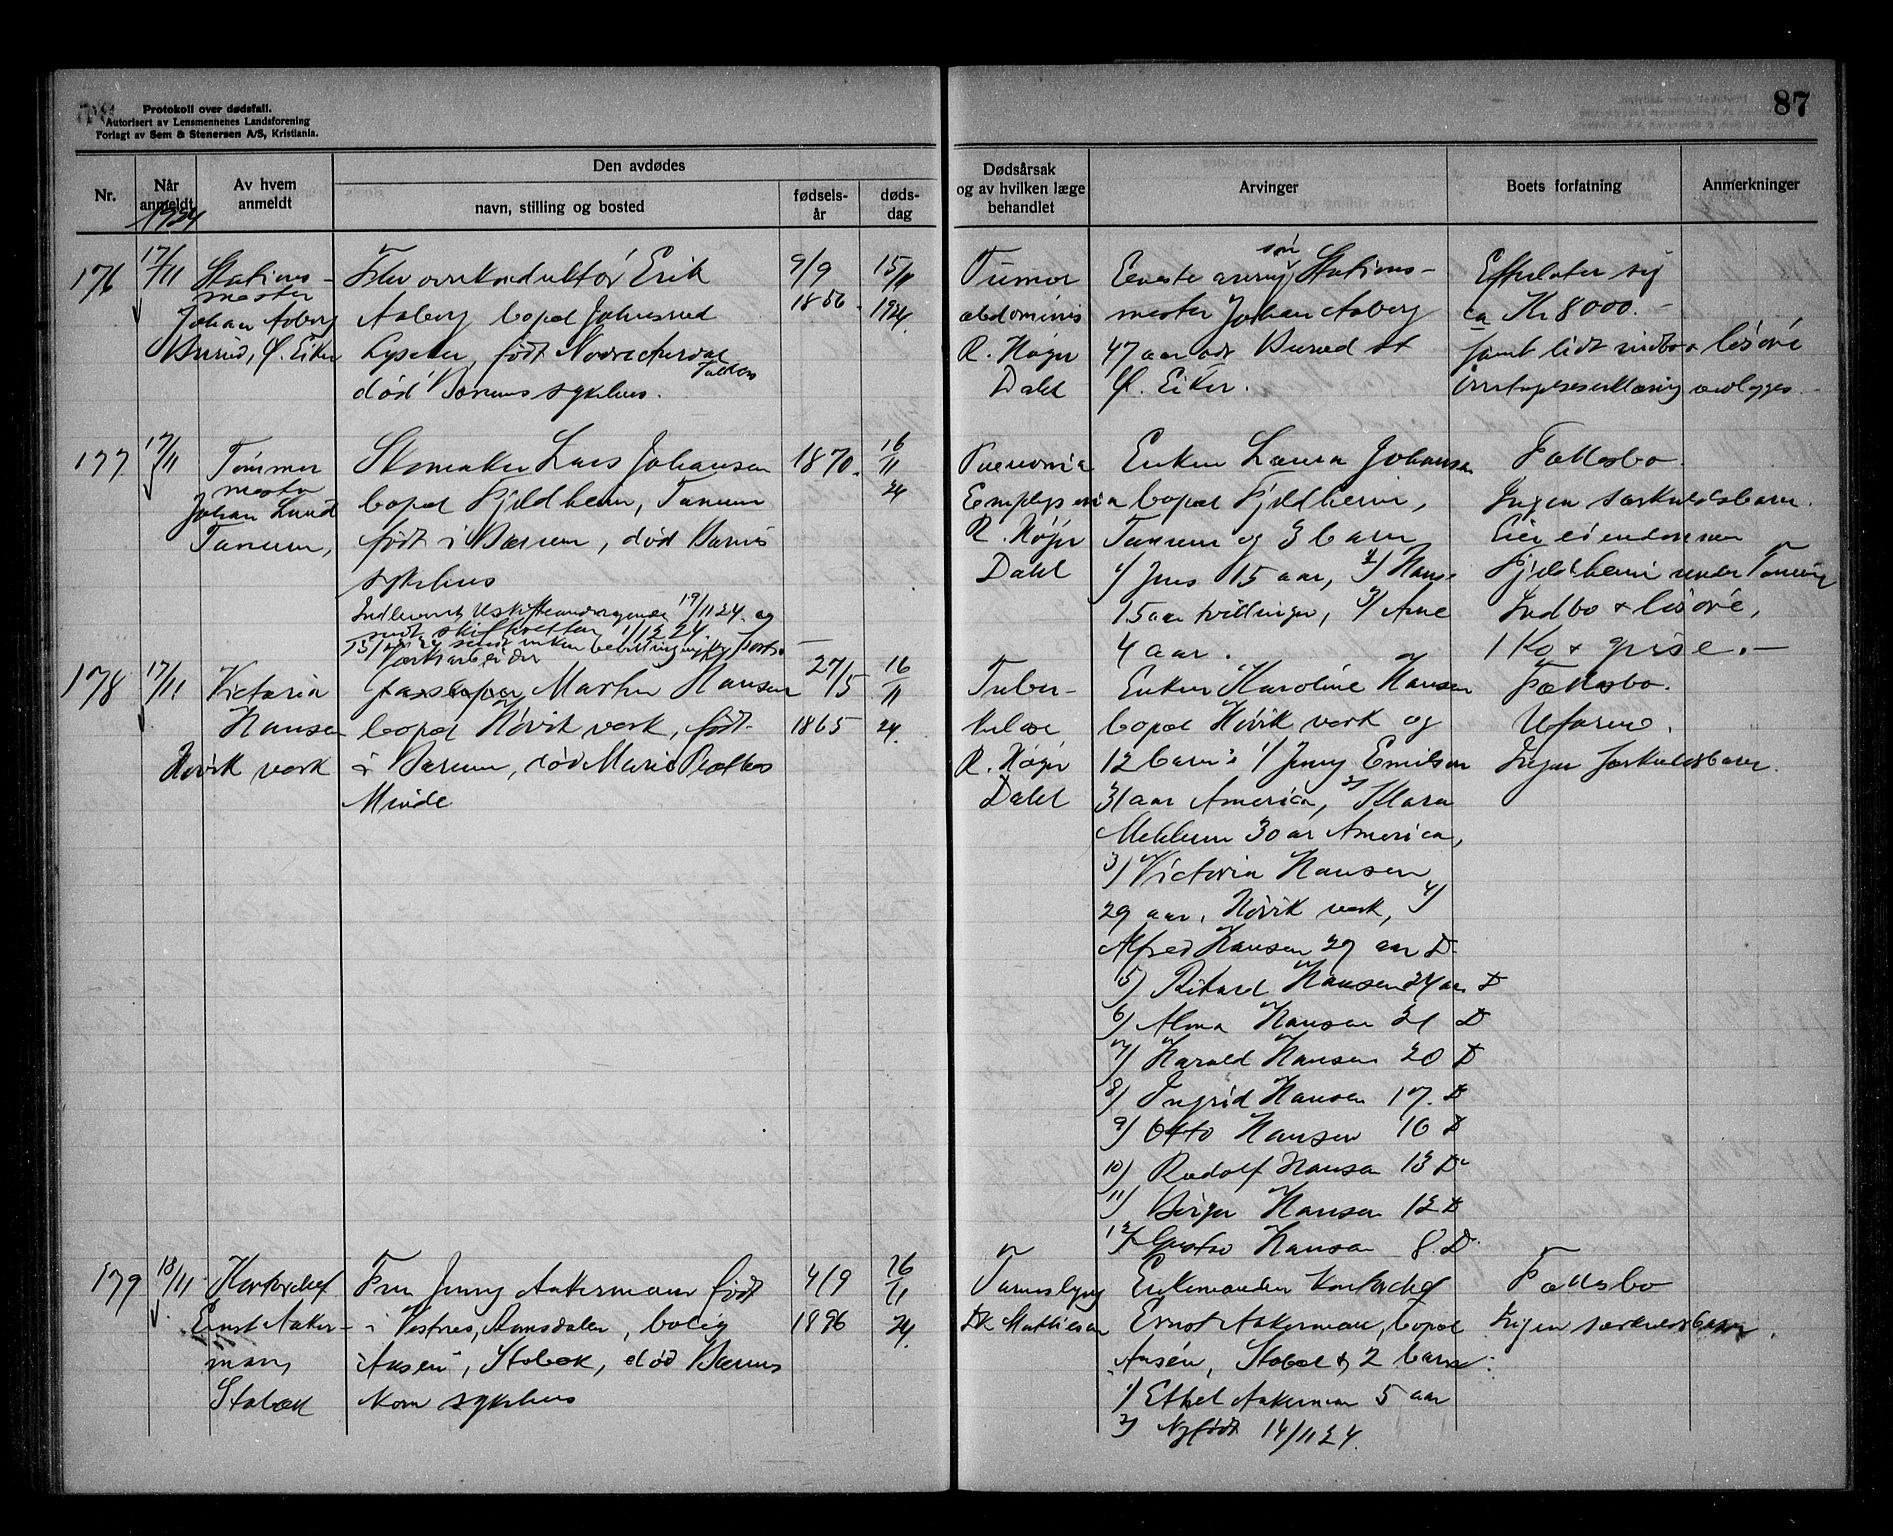 Protokoll over dødsfall.
Autorisert av Lensmennenes Landsforening
Forlagt av Sem & Stenersen A/S, Kristiania.
87
Nr.
Når anmeldt
1924
Av hvem anmeldt
Den avdødes
navn, stilling og bosted
fødsels-år
døds-dag
Dødsårsak og av hvilken læge behandlet
Arvinger
Boets forfatning
Anmerkninger
176
17/11
Stations-
mester
Johan Aaberg
Burud, Ø. Eiker
Erik
Aaberg bopæl
Lysaker, født
død Bærums sykehus.
9/9
1856
15/11
1924.
Tumor
abdominis
R. Høyer
Dahl
Eneste arving søn Stations-
mester Johan Aaberg
47 aar adr Burud st
Ø. Eiker.
Efterlater sig
ca Kr 8000.-
samt lidt indbo & løsøre
vedlegges.
177
17/11
Tømmer
mester
Johan Lund
Tanum,
Skomaker Lars Johansen
bopæl Fjeldheim, Tanum
født i Bærum, død Bærums
sykehus
19/11 24. og
sendt skifteretten 1/12 24.
1870.
16/11
24
R. Høyer
Dahl
Enken Laura Johansen
bopæl Fjeldheim,
Tanum og 3 barn
1) Jens 15 aar, 2) Hans
15 aar tvillinger, 3) Arne
4 aar.
Fællesbo.
Ingen særkuldsbarn.
Eier eiendommen
Fjeldheim under Tanum
Indbo & løsøre,
1 Ko & grise.-
178
17/11
Victoria
Hansen
Høvik verk
Martin Hansen
bopæl Høvik verk, født
i Bærum, død Marie Plathes
Minde
27/5
1865
16/11
24.
Tuber-
kulose
R. Høyer
Dahl
Enken Karoline Hansen
bopæl Høvik verk og
12 barn: 1) Jenny Emilsen
31 aar America, 2) Klara
30 aar America,
3) Victoria Hansen
29 aar, Høvik verk, 4)
Alfred Hansen 27 aar D.
5) Rikard Hansen 24 aar D
6) Alma Hansen 21 D
7) Harald Hansen 20 D
8) Ingrid Hansen 17. D
9) Otto Hansen 16 D
10) Rudolf Hansen 13 D.
11) Birger Hansen 12 D
12) Gustav Hansen 8. D.
Fællesbo.
Uformu.
Ingen særkuldsbarn.
179
18/11
Kontorchef
Ernst Aaker-
man,
Stabæk
Fru Jenny Aakermann født
i Vestnes, Romsdalen, bolig
"Aasen", Stabæk, død Bærums
Kom sykehus
4/9
1896
16/11
24.
Tarmslyng
Dr. Mathiesen
Enkemanden Kontorchef
Ernst Aakerman, bopæl
"Aasen", Stabæk & 2 barn:
1) Ethel Aakerman 5 aar
2) Nyfødt 14/11 24.
Fællesbo
Ingen særkuldsbarn.